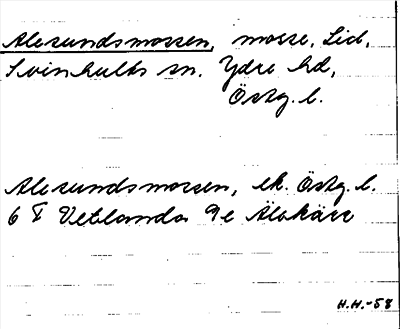 Alesundsmossen, mosse, Lid,
Svinhults sn. Ydre hd,
Östg. l.
Alesundsmossen, ek. Östg. l.
6 F Vetlanda 9e Älvkärr
H.H.-58